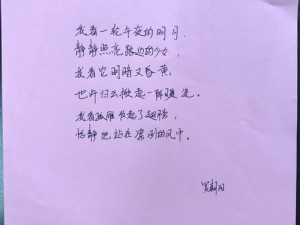 我看一轮午夜的明月
静静照亮路边的少女,
我看它明暗又昏黄,
也许归云掀起一阵暖流。
我看孤雁长起了翅膀,
恬静地站在凛冽的风中。